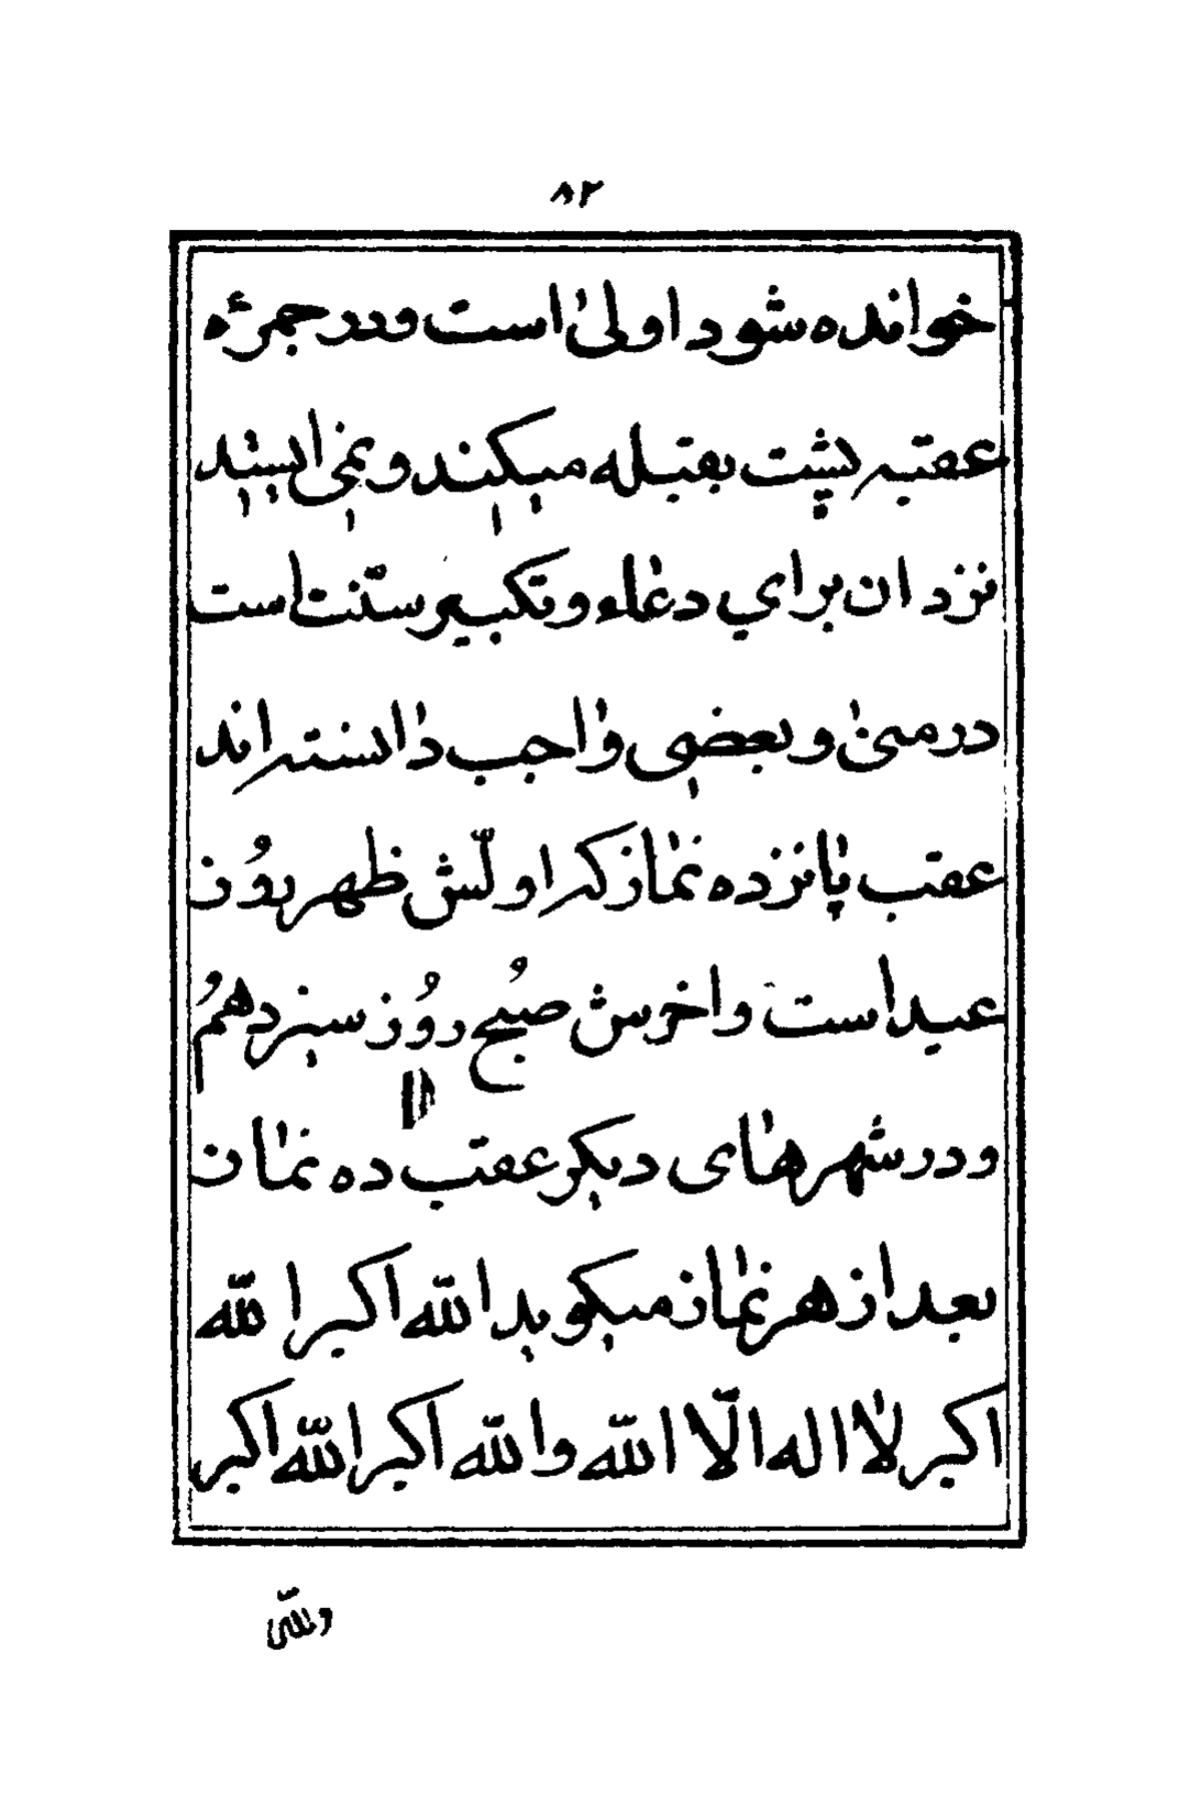 ۸۲
خوانده شود اولیٰ است ودر جمرهٔ
عقبه پشت بقبله میکند و نمی ایستد
نزد ان برای دعاء و تکبیر سنّت است
در منیٰ و بعضی واجب دانسته اند
عقب پانزده نماز که اولّش ظهر روُز
عید است واخرش صبُح روُز سیزدهمُ
ودر شهرهای دیکر عقب ده نماز
بعد از هر نماز میکوید اللّه اکبر اللّه
اکبر لا اله الّا اللّه واللّه اکبر اللّه اکبر